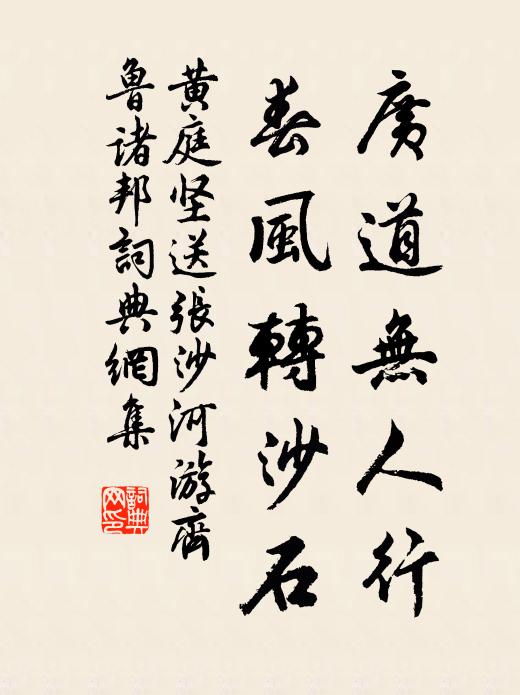 廣道無人行
春風轉沙石
黄庭坚送張沙河游齊
魯諸邦詞典網集
詞典网印